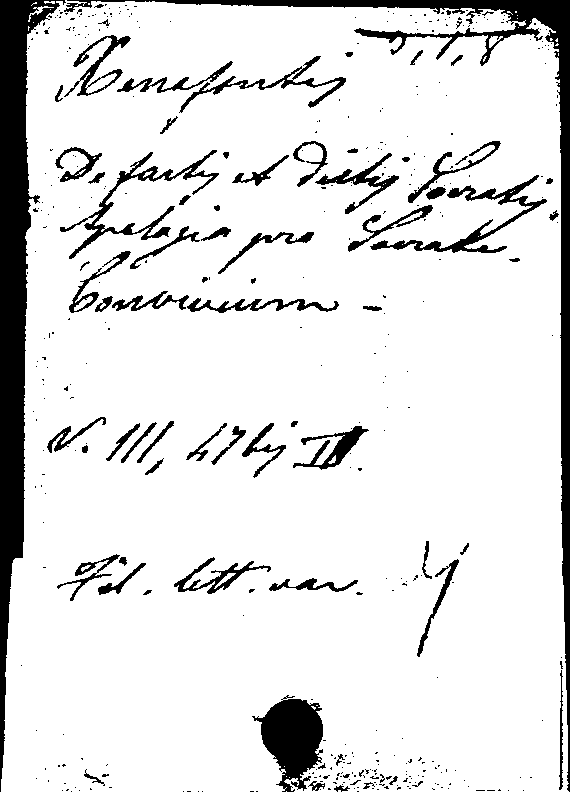 3, 1, 8
Xenofontis
De factis et dictis Socratis.
Apologia pro Socrate.
Convivium -
V. 111, 47 bis II.
Fil. lett. var. Y